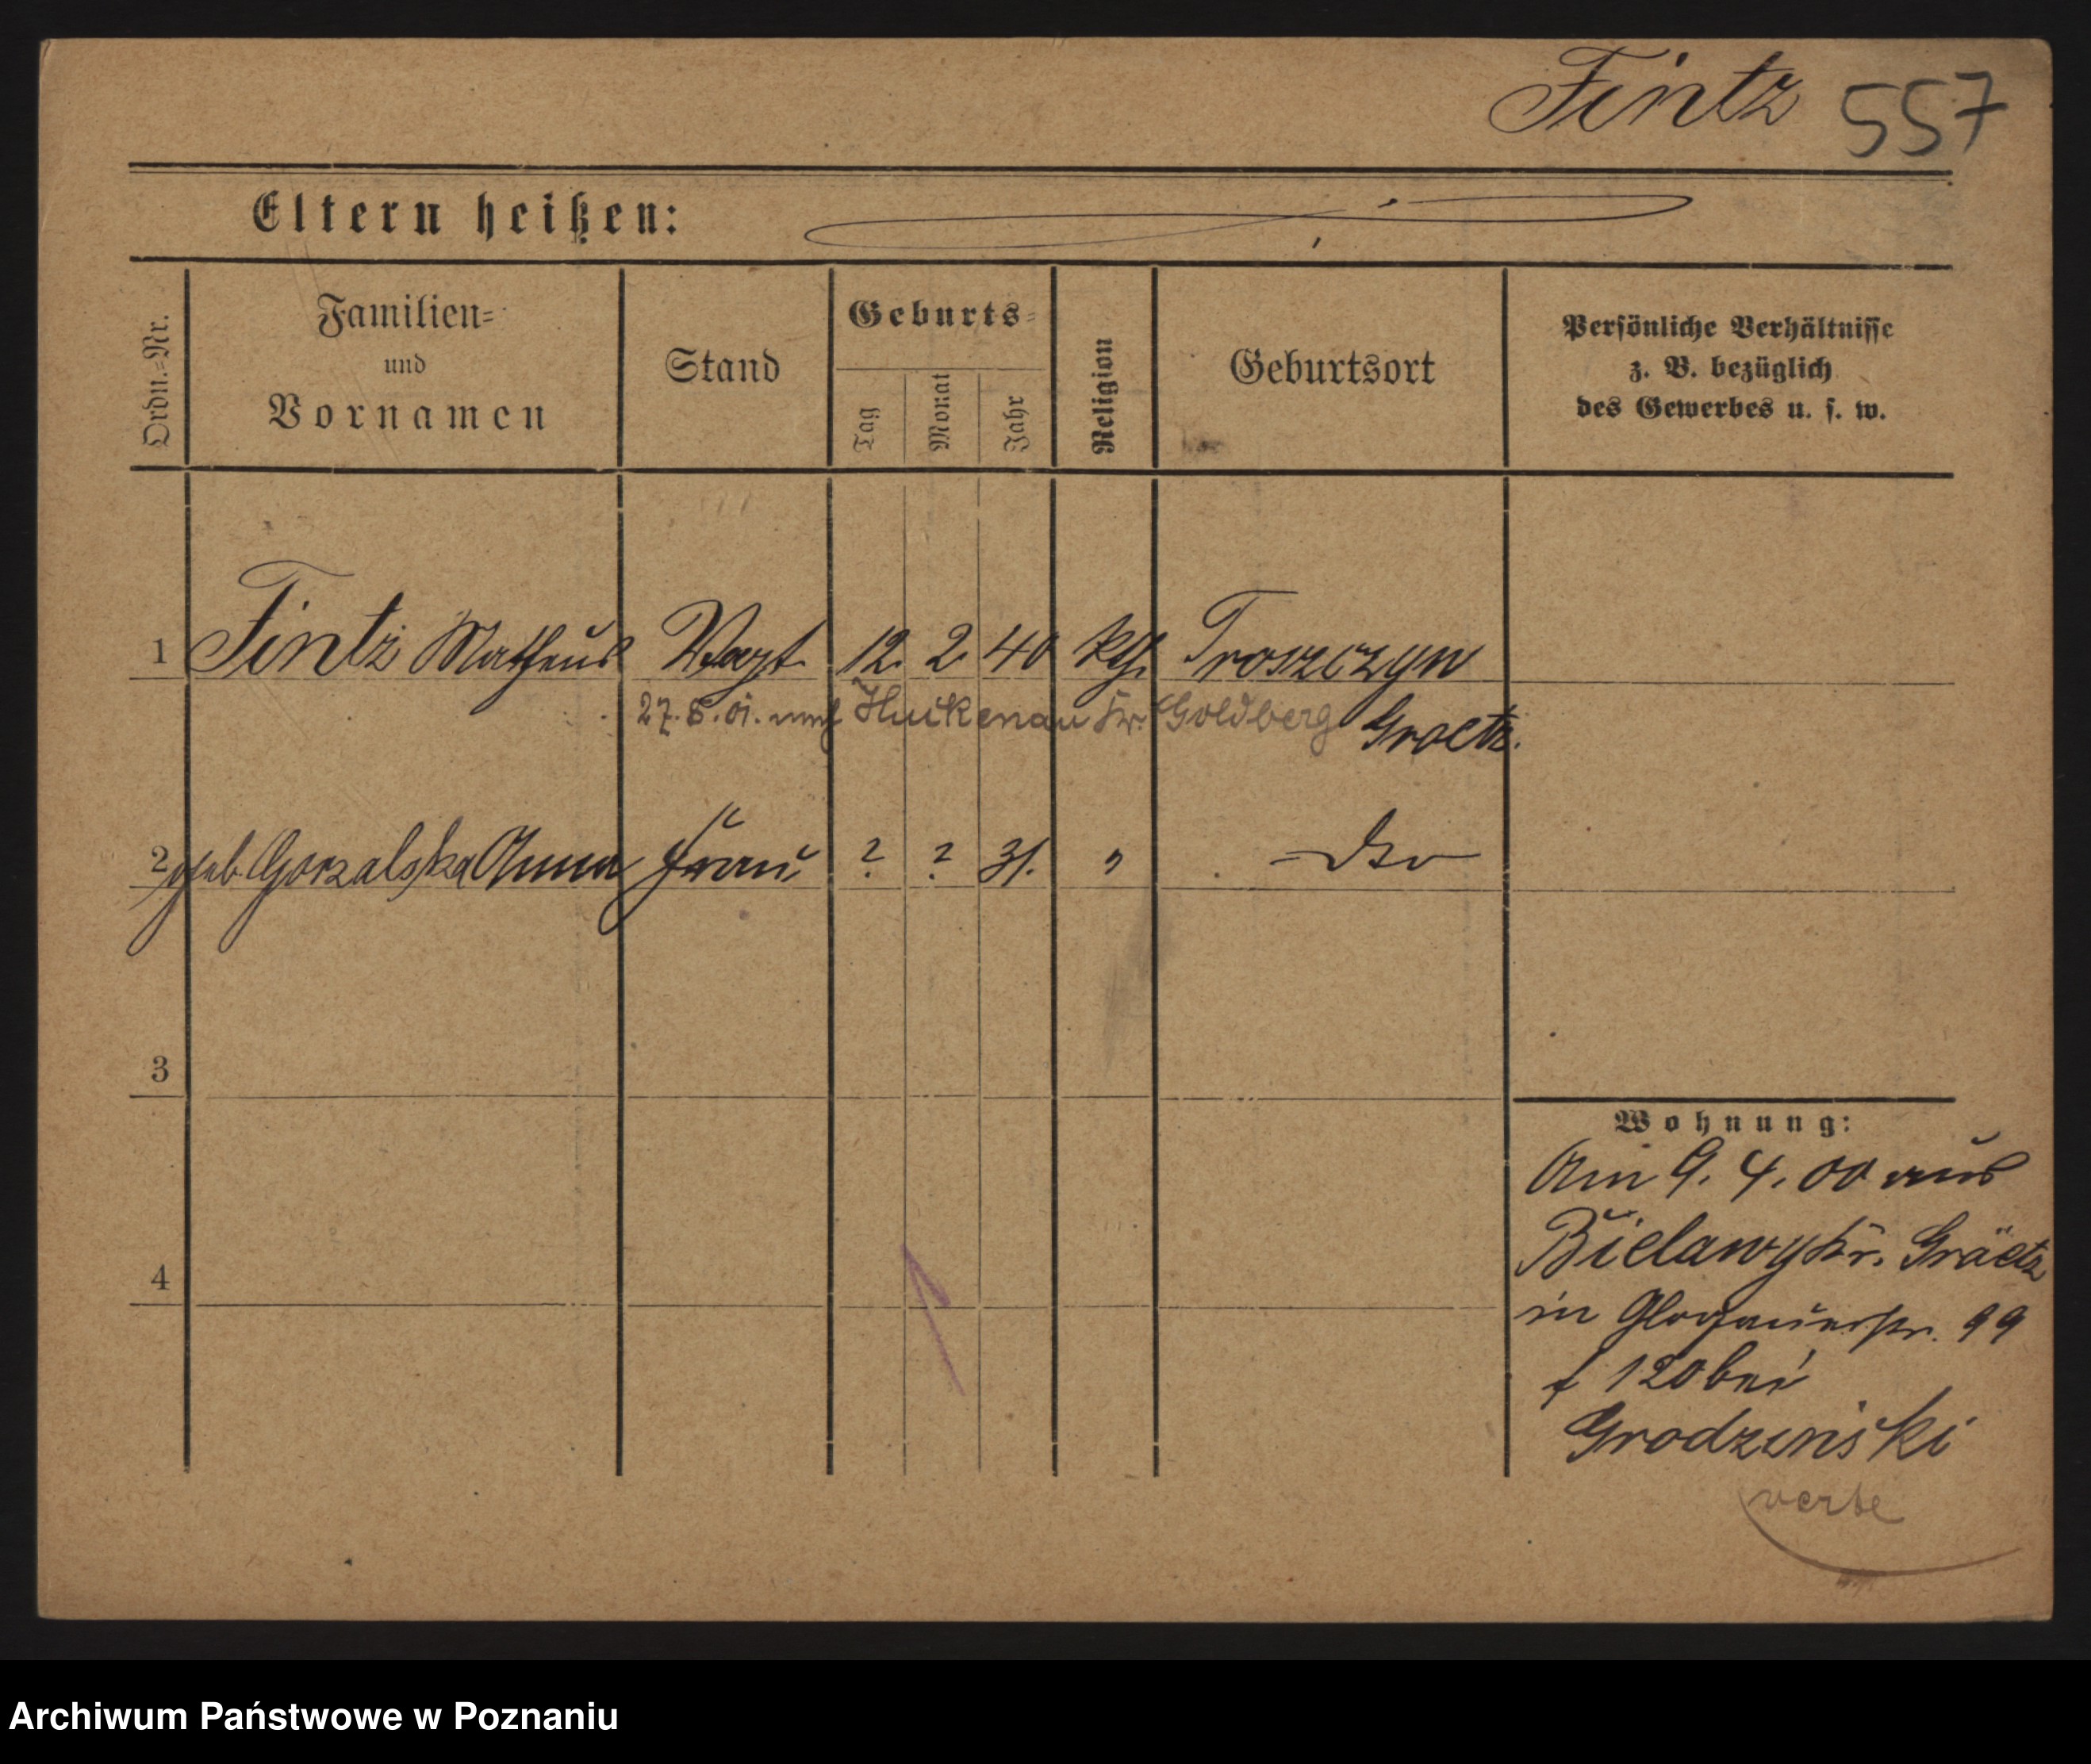 Fintz 557
Eltern heißen:
Ordn.-Nr.
Familien-
und
Vornamen
Stand
Geburts-
Tag
Monat
Jahr
Religion
Geburtsort
Persönliche Verhältnisse
z. B. bezüglich
des Gewerbes u. s. w.
1 Fintz Matheus Vogt 12. 2 40 kth. Troszczyn
27. 5. 01. nach Huckenau Kr. Goldberg Graetz.
2 geb Gorzalska Anna Frau ? ? 31. " dto
3
4
Wohnung:
Am 9. 4. 00 aus
Bielawy Kr. Grätz
in Glogauerstr. 99
120 bei
Grodzinski
Archiwum Państwowe w Poznaniu